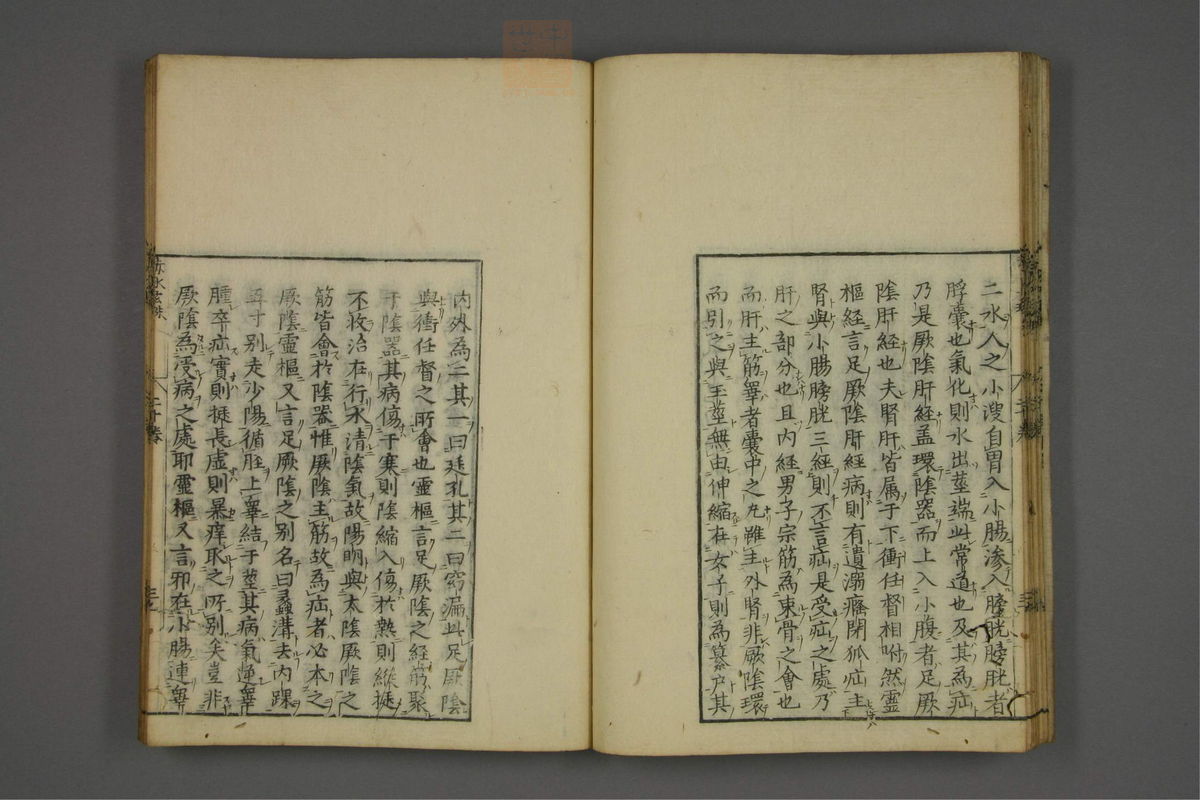 二水人之小溲自胃入小腸滲入膀胱膀胱者
脬囊也氣化則水出莖端此常道也及其為疝
乃是厥陰肝經盖環陰器而上入小腹者足厥
陰肝經也夫腎肝皆属于下衝任督相附然靈
樞經言足厥陰肝經病則有遺溺癃閉狐疝主
腎與小腸膀胱三經則不言疝是受疝之處乃
肝之部分也且内經男子宗筋為束骨之會也
而肝主筋睾者囊中之丸雖主外腎非厥陰環
而引之與玉莖無由伸縮在女子則為纂户其
内外為二其一曰廷孔其二曰窈漏此足厥陰
與衝任督之所會也靈樞言足厥陰之經筋聚
于陰器其病傷于寒則陰縮入傷於熱則縱挺
不收治在行水清陰氣故陽明與太陰厥陰之
筋皆會於陰器惟厥陰主筋故為疝者必本之
厥陰靈樞又言足厥陰之别名曰蠡溝去内踝
五寸别走少陽循脛上睾結于莖其病氣逆睾
腫卒疝實則挺長虚則暴痒取之所别矣豈非
厥陰為受病之處耶靈樞又言邪在小腸連睾
赤水玄珠
二十卷